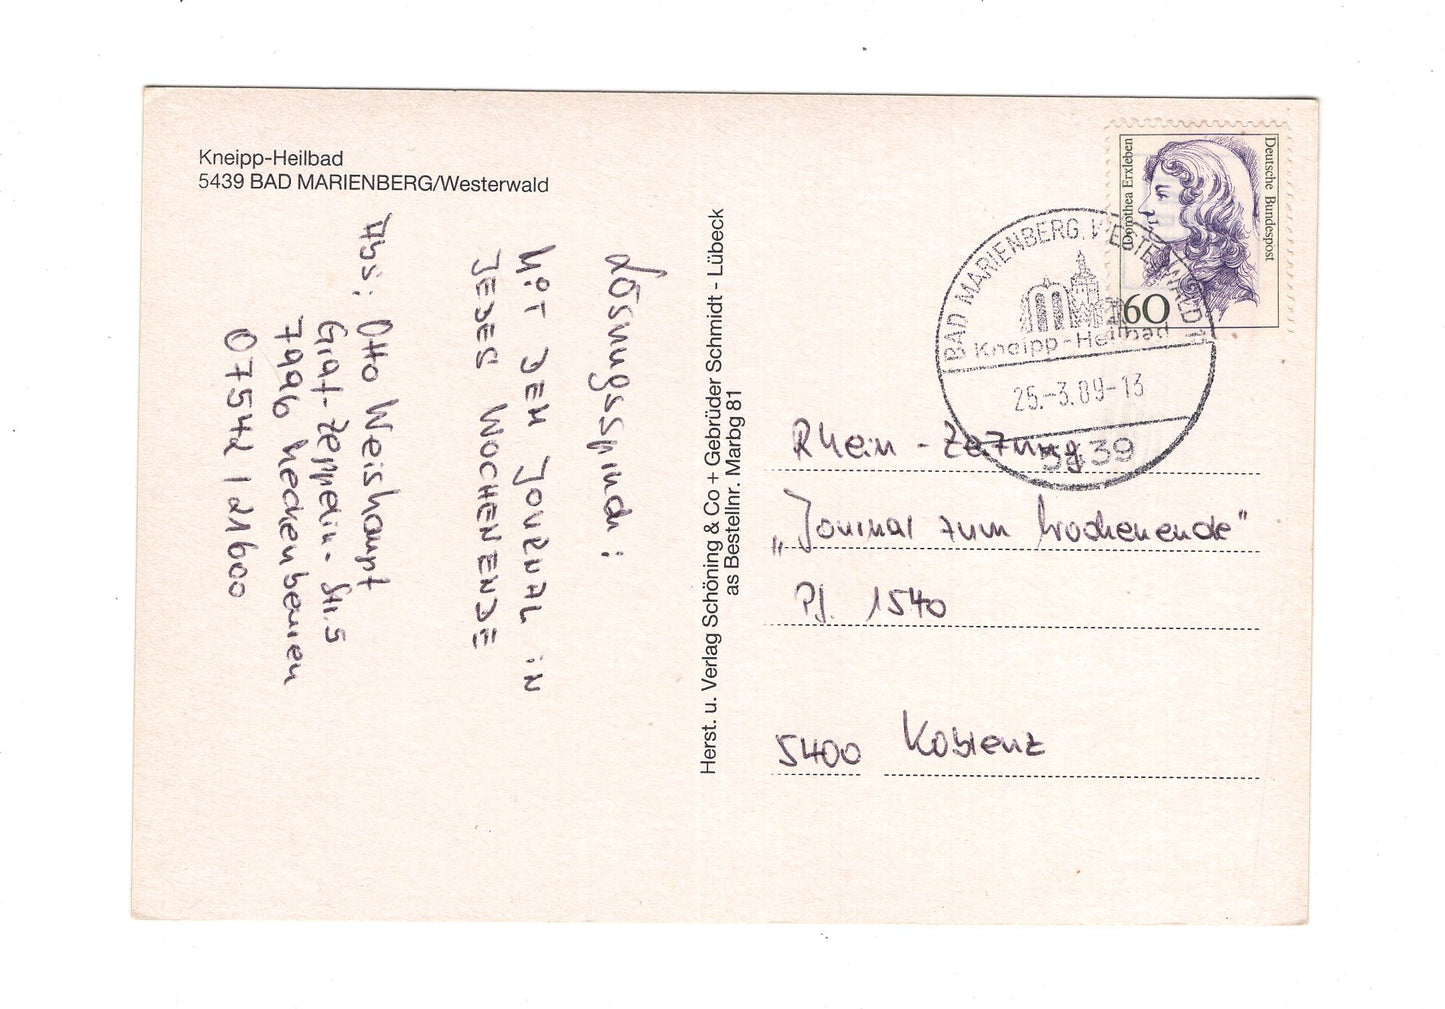 Kneipp-Heilbad
5439 BAD MARIENBERG/Westerwald
Lösungsspruch:
MIT DEM JOURNAL IN
JEDES WOCHENENDE
Abs: Otto Weishaupt
Graf-Zeppelin-Str. 5
7996 Meckenbeuren
07542 / 21600
Herst. u. Verlag Schöning & Co + Gebrüder Schmidt - Lübeck
as Bestellnr. Marbg 81
Dorothea Erxleben
Deutsche Bundespost
60
BAD MARIENBERG, WESTERWALD 1
Kneipp-Heilbad
25.-3.89-13
5439
Rhein-Zeitung
„Journal zum Wochenende"
Pf. 1540
5400 Koblenz